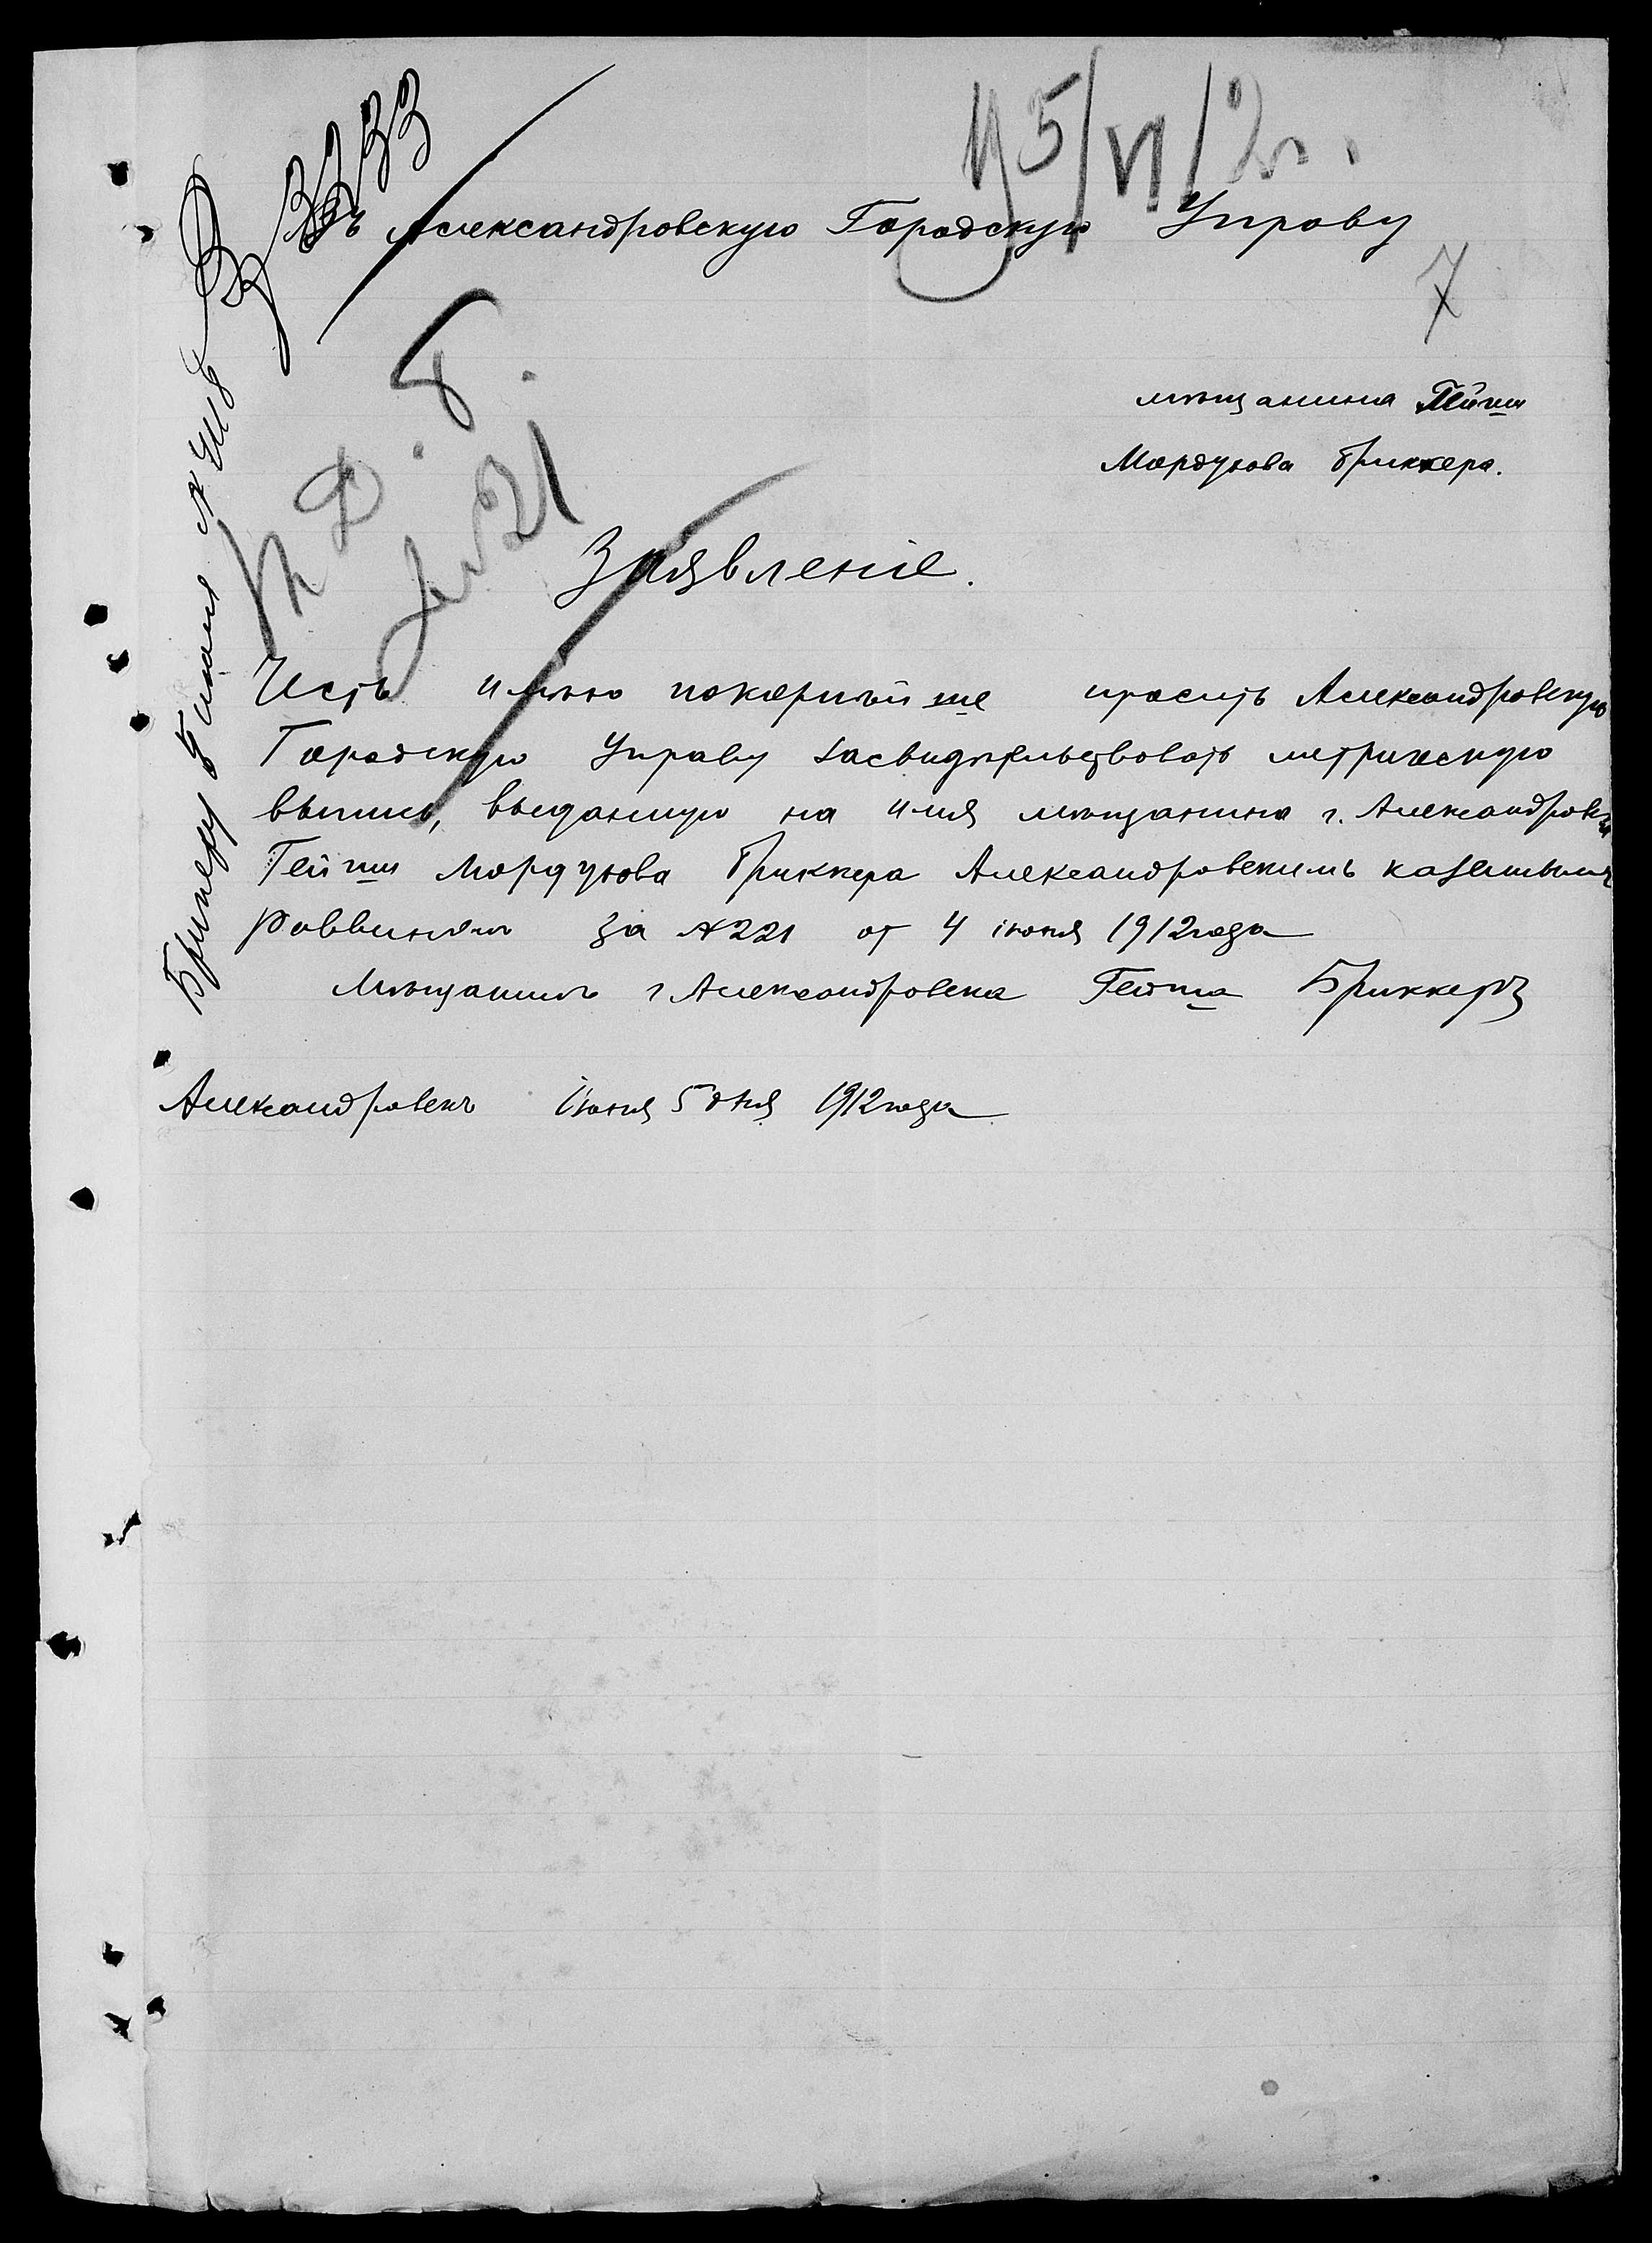 3233
У 5/VI/12 г.
Въ Александровскую Городскую Управу
7
мѣщанина Гейши
Мордухова Бриккера.
К Д. 8.
№ 21
Заявленіе.
Честь имѣю покорнѣйше просить Александровскую
Городскую Управу засвидѣтельствовать метрическую
выпись, выданную на имя мѣщанина г. Александровска
Гейши Мордухова Бриккера Александровскимъ казеннымъ
Раввиномъ за №221 от 4 іюня 1912 года
Мѣщанинъ г Александровска Гейша Бриккеръ
Александровскъ Іюня 5 дня 1912 года